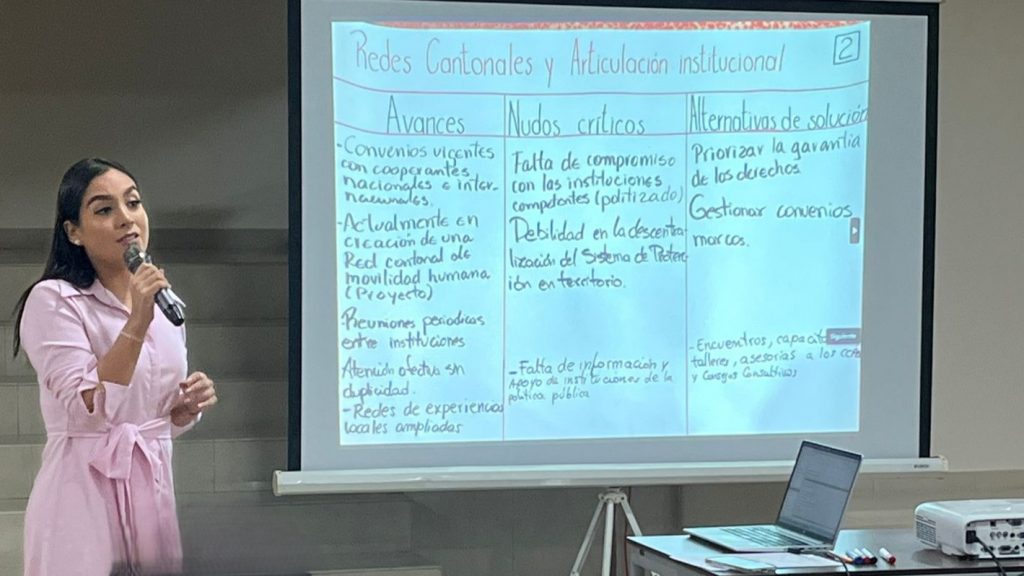 Redes Cantonales y Articulación institucional
2
Avances
- Convenios vigentes
con cooperantes
nacionales e inter-
nacionales.
- Actualmente en
creación de una
Red cantonal de
movilidad humana
(Proyecto)
Reuniones periodicas
entre instituciones
Atención efectiva sin
duplicidad.
- Redes de experiencias
locales ampliadas
Nudos críticos
Falta de compromiso
con las instituciones
competentes (politizado)
Debilidad en la descentra
lización del Sistema de Protec
ión en territorio.
- Falta de información y
Apoyo de instituciones de la
política pública
Alternativas de solución
Priorizar la garantía
de los derechos.
Gestionar convenios
marcos.
- Encuentros,
talleres, asesorias a los
y Consejos Consultivos